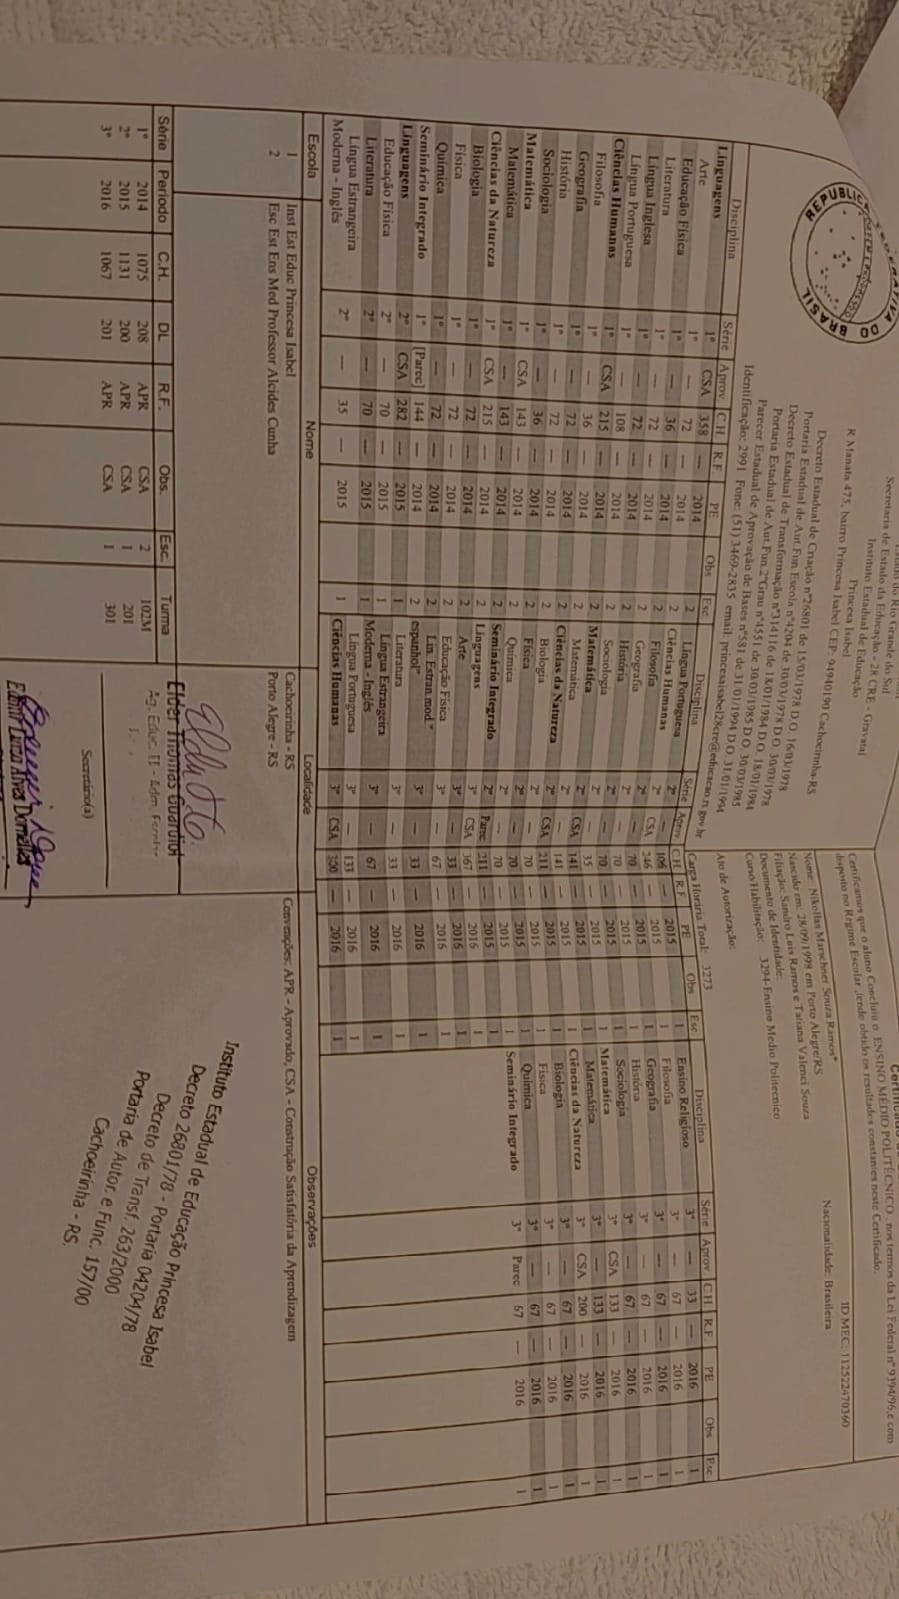 REPUBLICA
DO BRASIL
Secretaria de Estado da Educação - 28 CRE - Gravataí
Instituto Estadual de Educação
Princesa Isabel
R Manata 475, bairro Princesa Isabel CEP: 94940190 Cachoeirinha-RS
Decreto Estadual de Criação nº26801 de 15/03/1978 D.O. 16/03/1978
Portaria Estadual de Aut.Fun.Escola nº4204 de 30/03/1978 D.O. 30/03/1978
Decreto Estadual de Transformação nº31416 de 18/01/1984 D.O. 18/01/1984
Portaria Estadual de Aut.Fun.2ºGrau nº4551 de 30/03/1985 D.O. 30/03/1985
Parecer Estadual de Aprovação de Bases nº581 de 31/01/1994 D.O. 31/01/1994
Identificação: 2991 Fone: (51) 3469-2835 email: princesaisabel28cre@educacao.rs.gov.br
Certificamos que o aluno Concluiu o ENSINO MÉDIO POLITÉCNICO, nos termos da Lei Federal nº 9394/96,e com
disposto no Regime Escolar ,tendo obtido os resultados constantes neste Certificado.
ID MEC: 112522470360
Nome: Nikollas Marschner Souza Ramos*
Nacionalidade: Brasileira
Nascido em: 28/09/1998 em Porto Alegre/RS
Filiação: Sandro Luis Ramos e Tatiana Valenci Souza
Documento de Identidade:
Curso/Habilitação: 3294-Ensino Medio Politecnico
Ato de Autorização:
Carga Horária Total: 3273
Disciplina Série Aprov. C.H. R.F. PE Obs Esc.
Linguagens 1º CSA 358 — 2014 2
Arte 1º — 72 — 2014 2
Educação Física 1º — 36 — 2014 2
Literatura 1º — 72 — 2014 2
Língua Inglesa 1º — 72 — 2014 2
Língua Portuguesa 1º — 108 — 2014 2
Ciências Humanas 1º CSA 215 — 2014 2
Filosofia 1º — 36 — 2014 2
Geografia 1º — 72 — 2014 2
História 1º — 72 — 2014 2
Sociologia 1º — 36 — 2014 2
Matemática 1º CSA 143 — 2014 2
Matemática 1º — 143 — 2014 2
Ciências da Natureza 1º CSA 215 — 2014 2
Biologia 1º — 72 — 2014 2
Física 1º — 72 — 2014 2
Química 1º — 72 — 2014 2
Seminário Integrado 1º [Parec] 144 — 2014 2
Linguagens 2º CSA 282 — 2015 1
Educação Física 2º — 70 — 2015 1
Literatura 2º — 70 — 2015 1
Língua Estrangeira
Moderna - Inglês 2º — 35 — 2015 1
Disciplina Série Aprov C.H. R.F. PE Obs Esc.
Língua Portuguesa 2º — 106 — 2015 1
Ciências Humanas 2º CSA 246 — 2015 1
Filosofia 2º — 70 — 2015 1
Geografia 2º — 70 — 2015 1
História 2º — 70 — 2015 1
Sociologia 2º — 35 — 2015 1
Matemática 2º CSA 141 — 2015 1
Matemática 2º — 141 — 2015 1
Ciências da Natureza 2º CSA 211 — 2015 1
Biologia 2º — 70 — 2015 1
Física 2º — 70 — 2015 1
Química 2º — 70 — 2015 1
Seminário Integrado 2º Parec 211 — 2015 1
Linguagens 3º CSA 367 — 2016 1
Arte 3º — 33 — 2016 1
Educação Física 3º — 67 — 2016 1
Lin. Estran.mod."
espanhol" 3º — 33 — 2016 1
Literatura 3º — 33 — 2016 1
Língua Estrangeira
Moderna - Inglês 3º — 67 — 2016 1
Língua Portuguesa 3º — 133 — 2016 1
Ciências Humanas 3º CSA 300 — 2016 1
Disciplina Série Aprov C.H. R.F. PE Obs Esc
Ensino Religioso 3º — 33 — 2016 1
Filosofia 3º — 67 — 2016 1
Geografia 3º — 67 — 2016 1
História 3º — 67 — 2016 1
Sociologia 3º — 67 — 2016 1
Matemática 3º CSA 133 — 2016 1
Matemática 3º — 133 — 2016 1
Ciências da Natureza 3º CSA 200 — 2016 1
Biologia 3º — 67 — 2016 1
Física 3º — 67 — 2016 1
Química 3º — 67 — 2016 1
Seminário Integrado 3º Parec 67 — 2016 1
Escola Nome Localidade Observações
1 Inst Est Educ Princesa Isabel Cachoeirinha - RS
2 Esc Est Ens Med Professor Alcides Cunha Porto Alegre - RS
Convenções: APR - Aprovado, CSA - Construção Satisfatória da Aprendizagem
Série Período C.H. DL R.F. Obs. Esc. Turma
1º 2014 1075 208 APR CSA 2 102M
2º 2015 1131 200 APR CSA 1 201
3º 2016 1067 201 APR CSA 1 301
Elder Thomas Guardiol
Ag. Educ. II - Adm. Escolar
Secretário(a)
Instituto Estadual de Educação Princesa Isabel
Decreto 26801/78 - Portaria 04204/78
Decreto de Transf. 263/2000
Portaria de Autor. e Func. 157/00
Cachoeirinha - RS.